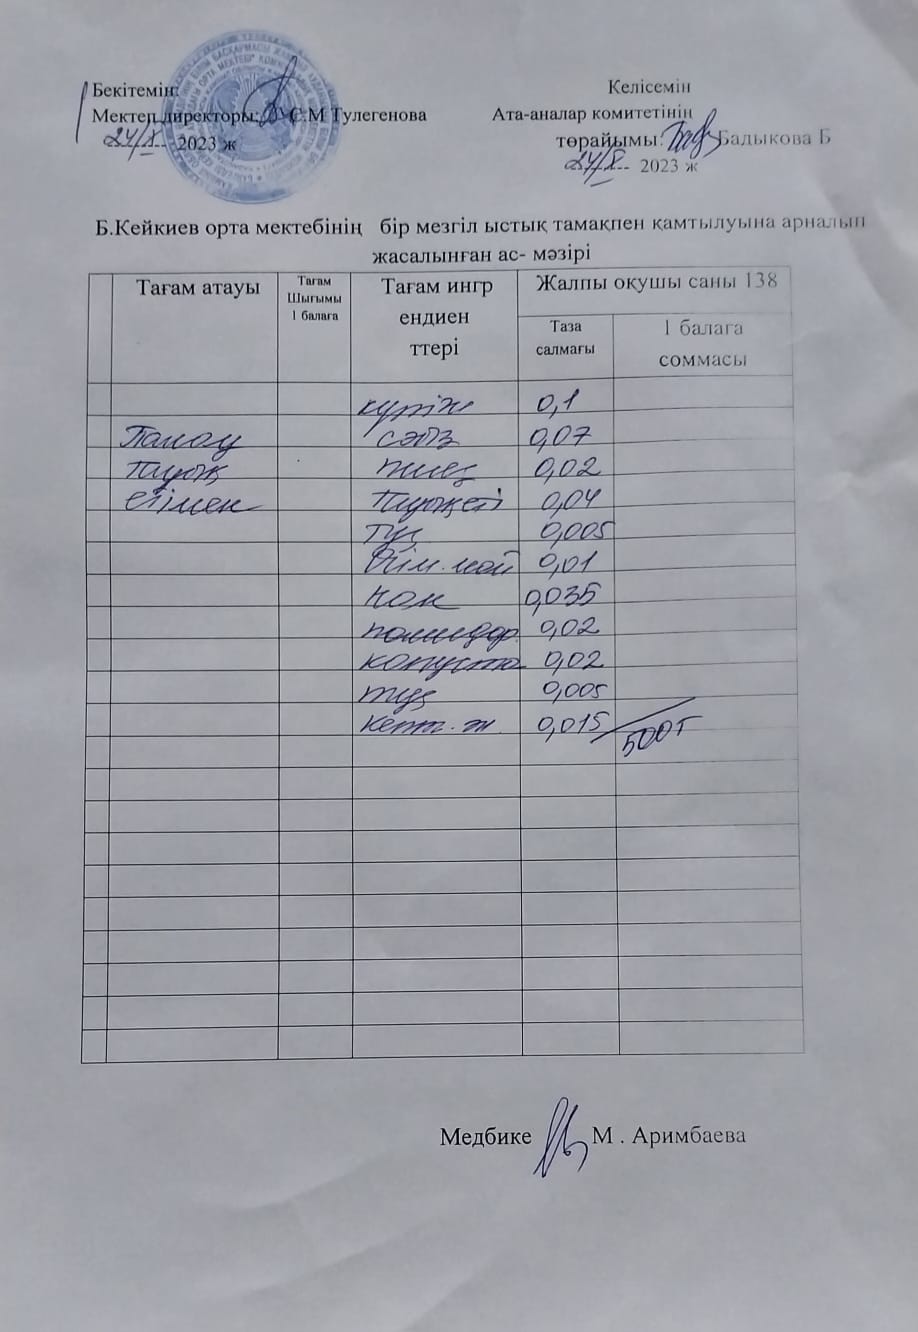 Бекітемін:
Мектеп директоры: С.М Тулегенова
24/X 2023 ж
Келісемін
Ата-аналар комитетінің
төрайымы: Бадыкова Б
24/X 2023 ж
Б.Кейкиев орта мектебінің бір мезгіл ыстық тамақпен қамтылуына арналып
жасалынған ас- мәзірі
Тағам атауы
Тағам
Шығымы
1 балаға
Тағам ингр
ендиен
ттері
Жалпы оқушы саны 138
Таза
салмағы
1 балаға
соммасы
күріш 0,1
Палау сәбіз 0,07
тауық пияз 0,02
етімен Тауық еті 0,04
Тұз 0,005
Өсім. май 0,01
нан 0,035
помидор 0,02
капуста 0,02
0,005
кепт. ж 0,015 / 500т
Медбике М . Аримбаева